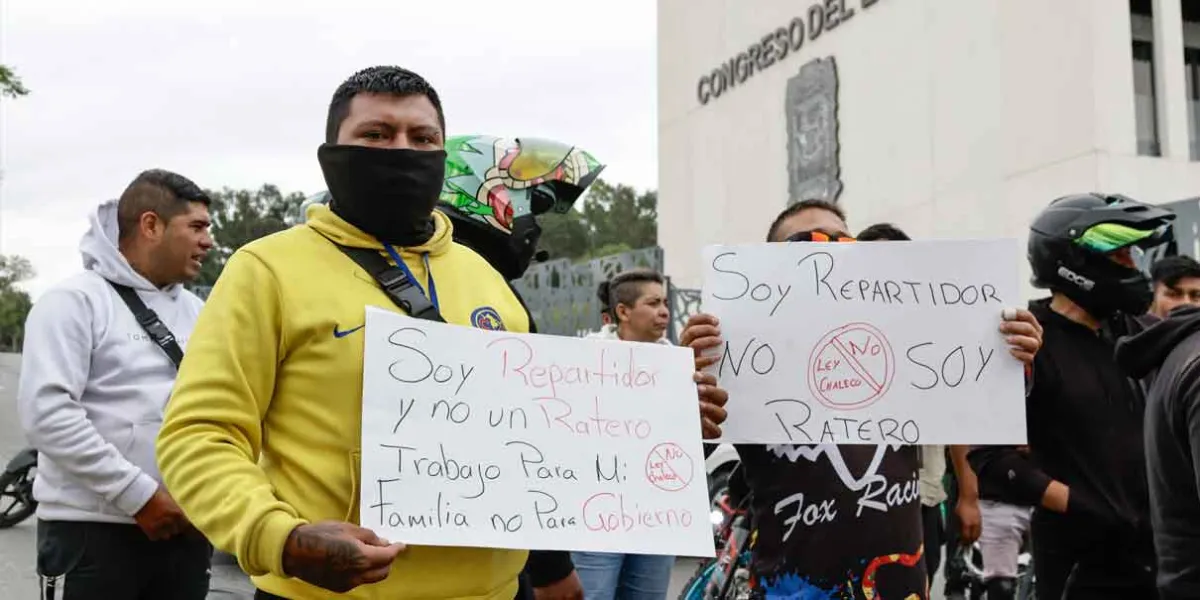 CONGRESO DEL
Soy Repartidor
y no un Ratero
Trabajo Para Mi
Familia no Para Gobierno
No
Ley
Chaleco
Soy Repartidor
No
Soy
Ratero
No
Ley
Chaleco
Fox Racing